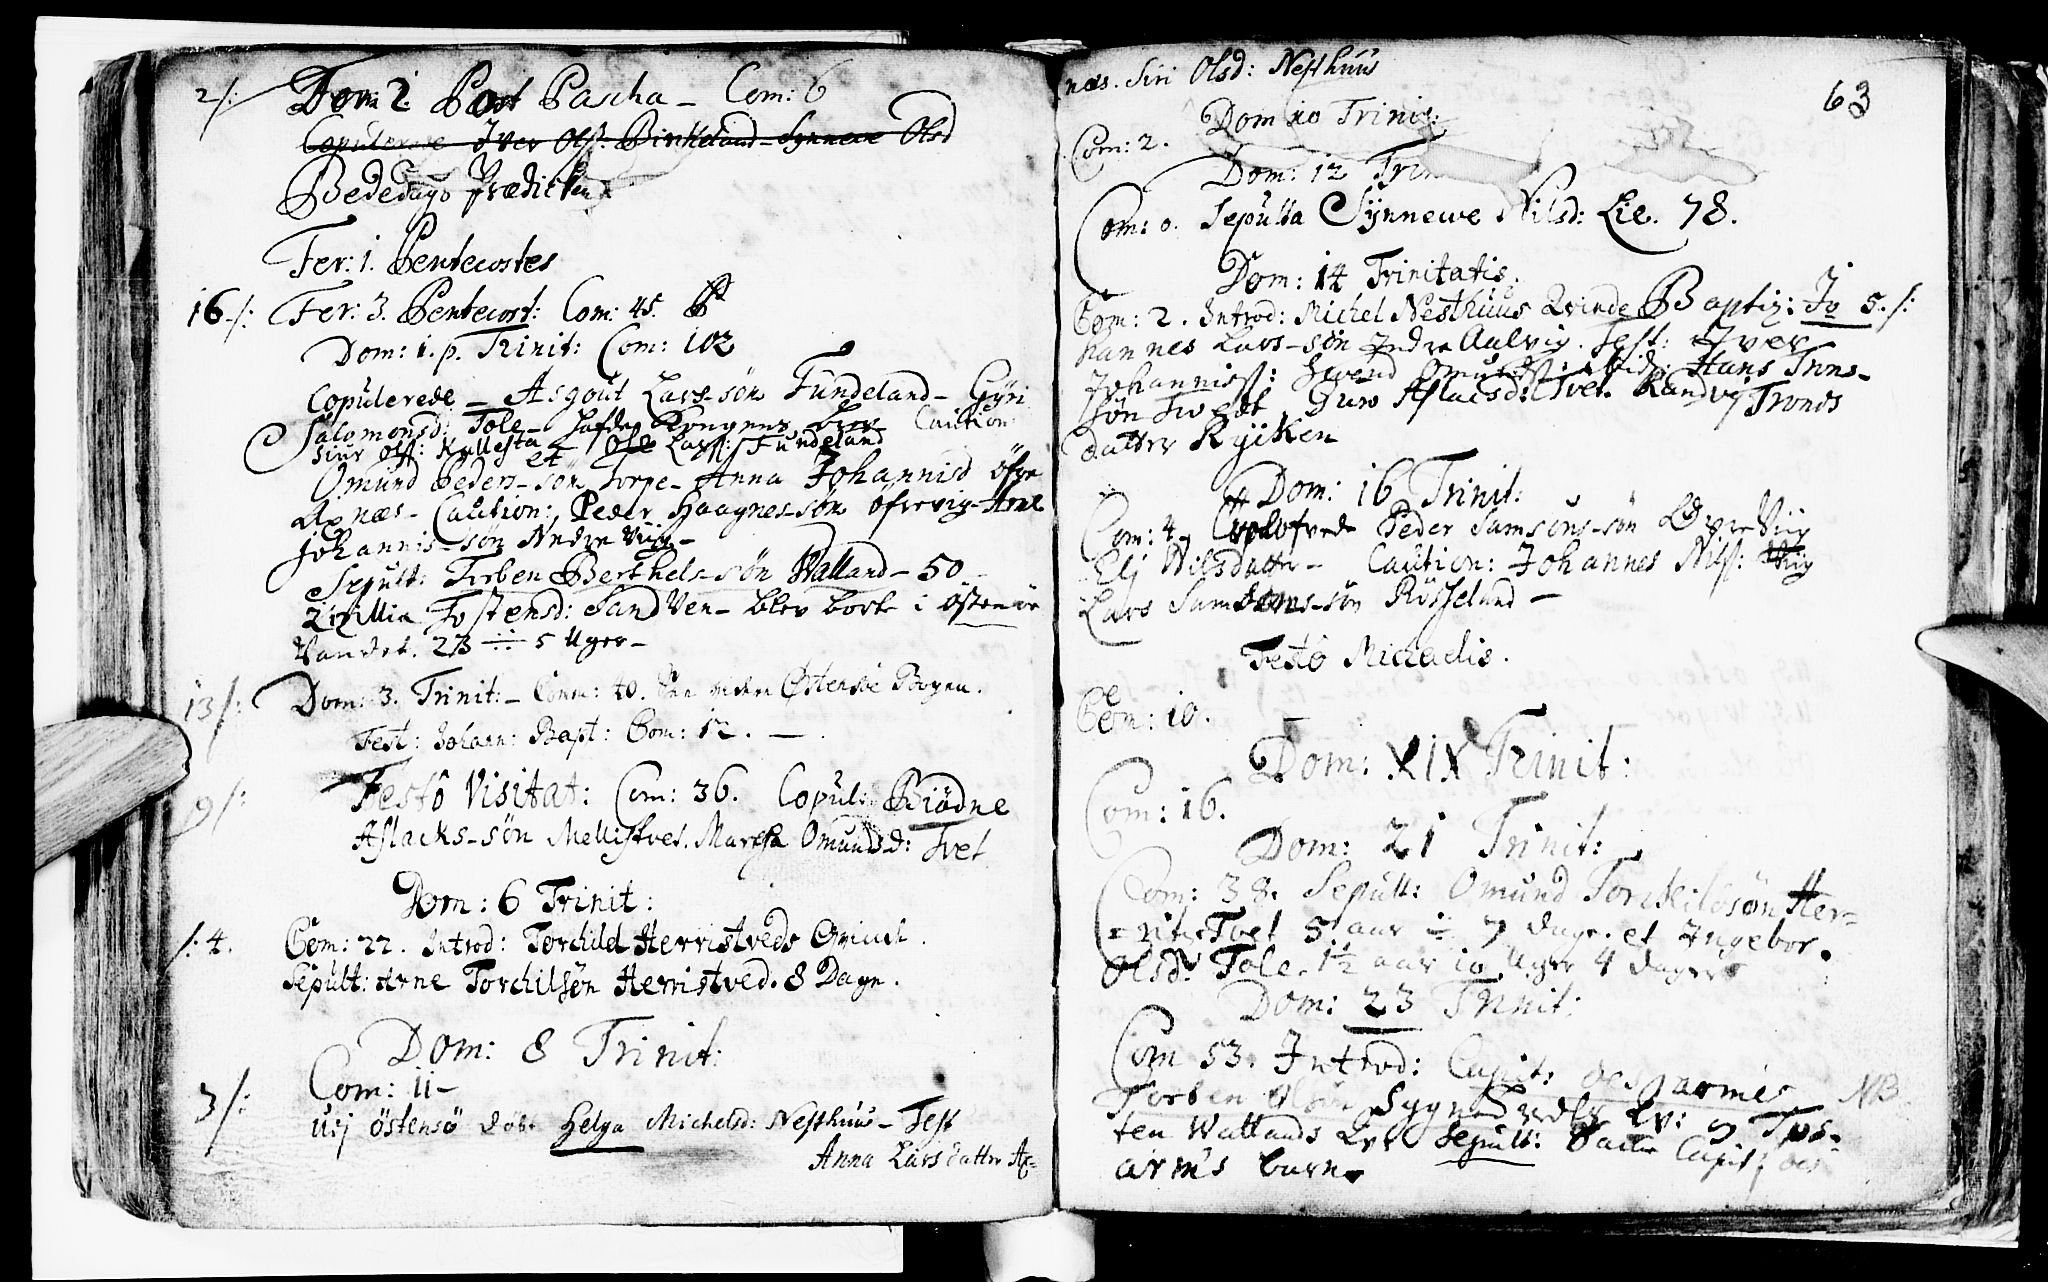 2/: Dom: 2. Post Pascha – Com: 6
Copulerede Iver Ols: Birkeland – Synneve Olsd
Bededags Prædicken
Fer: 1. Pentecostes
16./: Fer: 3. Pentecost: Com: 45.
Dom: 1. p. Trinit: Com: 102
Copulerede – Asgout Lars-søn Fundeland – Gÿri
Salomonsd: Tole – Kongens Caution:
Siur Ols: Kallesta Ole Lars: Fundeland
et
Omund Peders-søn Torpe – Anna Johannisd øfre
Axnæs – Caution: Peder Haagnes-søn øfrevig – Arne
Johannis-søn Nedre Viig –
Sepult: Torben Berthels-søn Walland – 50 –
Tostensd: Sandven – blev borte i østensøe
Vandet. 23 ÷ 5 Uger –
13/: Dom: 3. Trinit: – Comm: 40. Østensøe Bogen.
Fest: Johann: Bapt: Com: 12. – .
9/: Festo Visitat: Com: 36. Copul: Biødne
Aslacks-søn Mellistvet. Marcha Omunds-d: Tvet
Dom: 6 Trinit:
/: 4. Com: 22. Introd: Torchild Herristveds Qvinde.
Sepult: Arne Torchilsøn Herristved. 8 Dage.
Dom: 8 Trinit:
3/: Com: 11 –
udj østensø døbt Helga Michelsd: Nesthuus – Test
Anna Lars datter Ax=
næs. Siri Olsd: Nesthuus
63
Dom 10 Trinit:
Com: 2.
Dom: 12 Trin
Com: 0. Sepulta Sÿnnewe Nilsd: Lie. 78.
Dom: 14 Trinitatis.
Com: 2. Introd: Michel Nesthuus Qvinde Baptiz: Jo 5./:
hannes Lars-søn Indre Aalvig. Test: Iver
Johannis: Svend Omunds: Hans Trons-
søn Tvedt, Guro Aslacsd: Tvet. Randvj Tronds
datter Rÿken
Dom: 16 Trinit:
Com: 4. Peder Samsons-søn Øvre Viig
Elj Nilsdatter – Caution: Johannes Nils: Viig
Lars Samsons-søn Røsseland –
Festo Michaelis.
Com: 10.
Dom: XIX Trinit:
Com: 16.
Dom: 21 Trinit:
Com: 38. Sepult: Omund Torckilsøn Her=
=ris Tvet 5 aar ÷ 7 dage. et Ingebor.
Olsd: Tole. 1½ aar 10 Uger 4 dager
Dom: 23 Trinit:
Com 53. Introd: Capit: armes NB.
Torben Sygnes: Tos-
ten Wallands Qv: Sepult: Capit:
arm's barn.